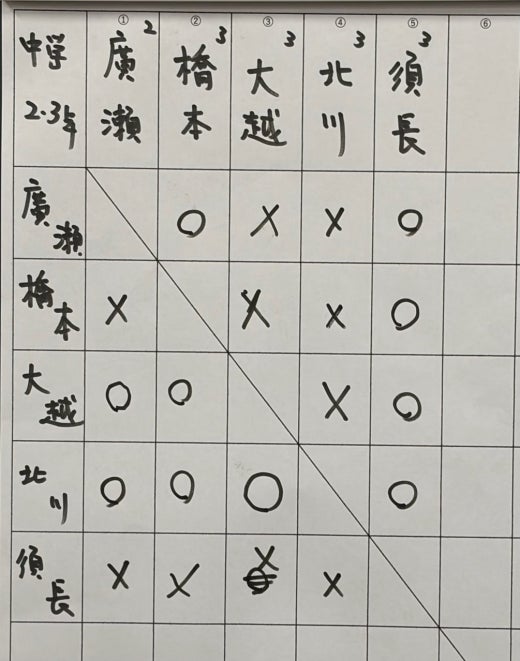 ① ② ③ ④ ⑤ ⑥
中学2・3年 廣瀬2 橋本3 大越3 北川3 須長3
廣瀬 ○ × × ○
橋本 × × × ○
大越 ○ ○ × ○
北川 ○ ○ ○ ○
須長 × × × ×